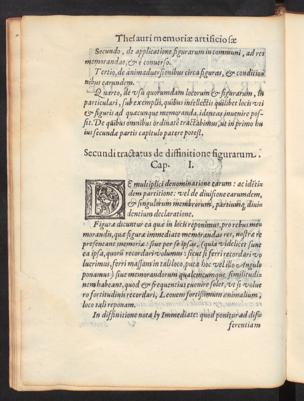 Thesauri memoriæ artificiosæ
Secundo, de applicatione figurarum in communi, ad res
memorandas, & è conuerso.
Tertio, de animaduersionibus circa figuras, & conditio
nibus earundem.
Quarto, de vsu quorumdam locorum & figurarum, in
particulari, sub exemplis, quibus intellectis quilibet locis vti
& figuris ad quæcunque memoranda, idoneus inuenire pos-
sit. De quibus omnibus ordinatè tractabimus, vt in primo hu
ius secundæ partis capitulo patere potest.
Secundi tractatus de diffinitione figurarum.
Cap. I.
DE multiplici denominatione earum: ac ibidem
dem partitione: vel de diuisione earumdem,
& singulorum membrorum, partiumq; diui-
dentium declaratione.
Figuræ dicuntur ea quæ in locis reponimus, pro rebus me-
morandis, quæ figuræ immediatè memorandas res, nostræ re
præsentant memoriæ: siue per se ipsas, (quia videlicet sunt
ea ipsa, quorũ recordari volumus: sicut si ferri recordari vo
lucrimus, ferri massam in tali loco, puta hoc vel illo Angulo
ponamus) siue memorandorum qualemcunque similitudi
nem habeant, quod & frequentius euenire solet, vt si volue
ro fortitudinis recordari, Leonem fortissimum animalium,
loco tali reponam.
In diffinitione nota ly Immediatè: quod ponitur ad diffe
ferentiam